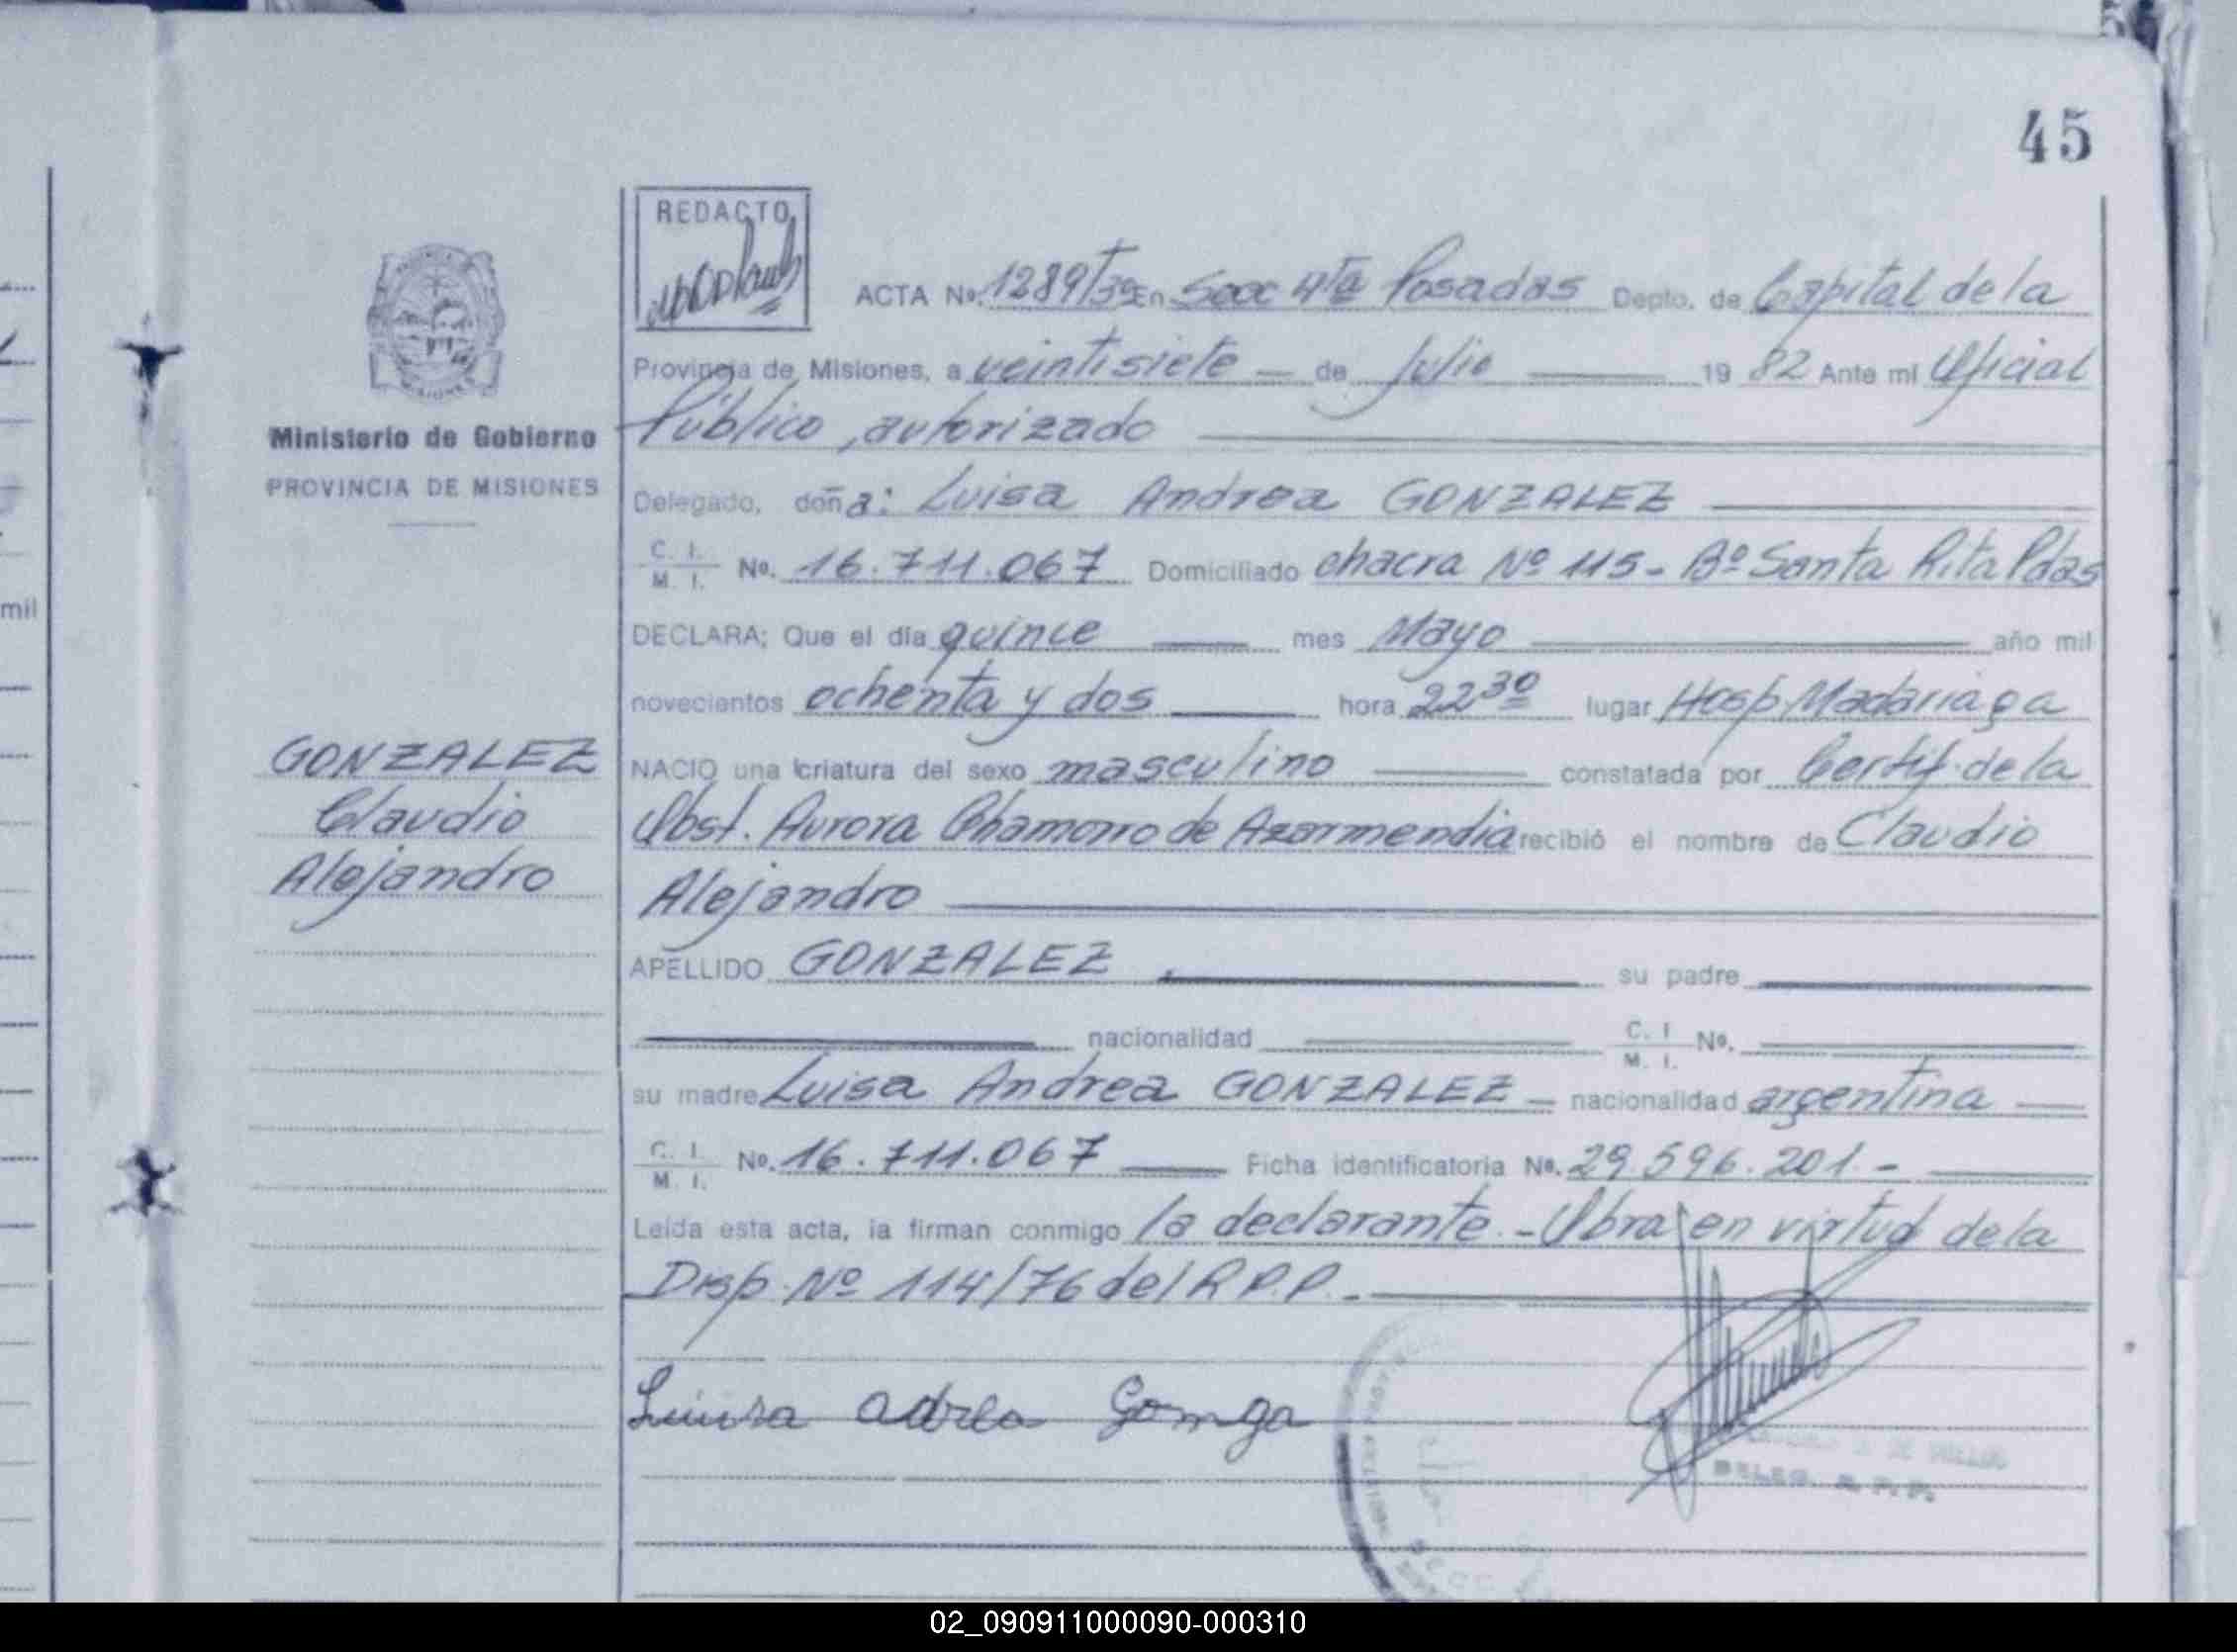 45
REDACTO
ACTA No. 1289/T39 En Secc 4ta Posadas Depto. de Capital de la
Provincia de Misiones, a veintisiete — de Julio — 19 82 Ante mí Oficial
Público, autorizado
Ministerio de Gobierno
PROVINCIA DE MISIONES
Delegado, doña: Luisa Andrea GONZALEZ
C. I. / M. I. No. 16.711.067 Domiciliado chacra Nº 115 - Bº Santa Rita Pdas
DECLARA; Que el día quince — mes Mayo — año mil
novecientos ochenta y dos — hora 22 30 lugar Hosp. Madariaga
GONZALEZ
Claudio
Alejandro
NACIO una criatura del sexo masculino — constatada por Certif. de la
Obst. Aurora Chamorro de Azarmendia recibió el nombre de Claudio
Alejandro
APELLIDO GONZALEZ su padre
nacionalidad C. I / M. I. No.
su madre Luisa Andrea GONZALEZ — nacionalidad argentina —
C. I. / M. I. No. 16.711.067 — Ficha identificatoria No. 29.596.201.-
Leída esta acta, la firman conmigo la declarante.- Obra en virtud de la
Disp. Nº 114/76 del R.P.P.-
Luiisa adrea Gomga
DELEG. R. P. P.
mil
02_090911000090-000310